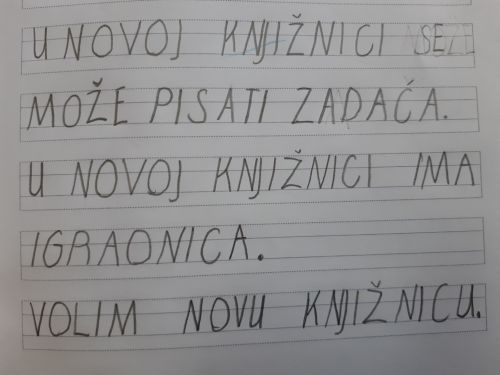 U NOVOJ KNJIŽNICI SE
MOŽE PISATI ZADAĆA.
U NOVOJ KNJIŽNICI IMA
IGRAONICA.
VOLIM NOVU KNJIŽNICU.